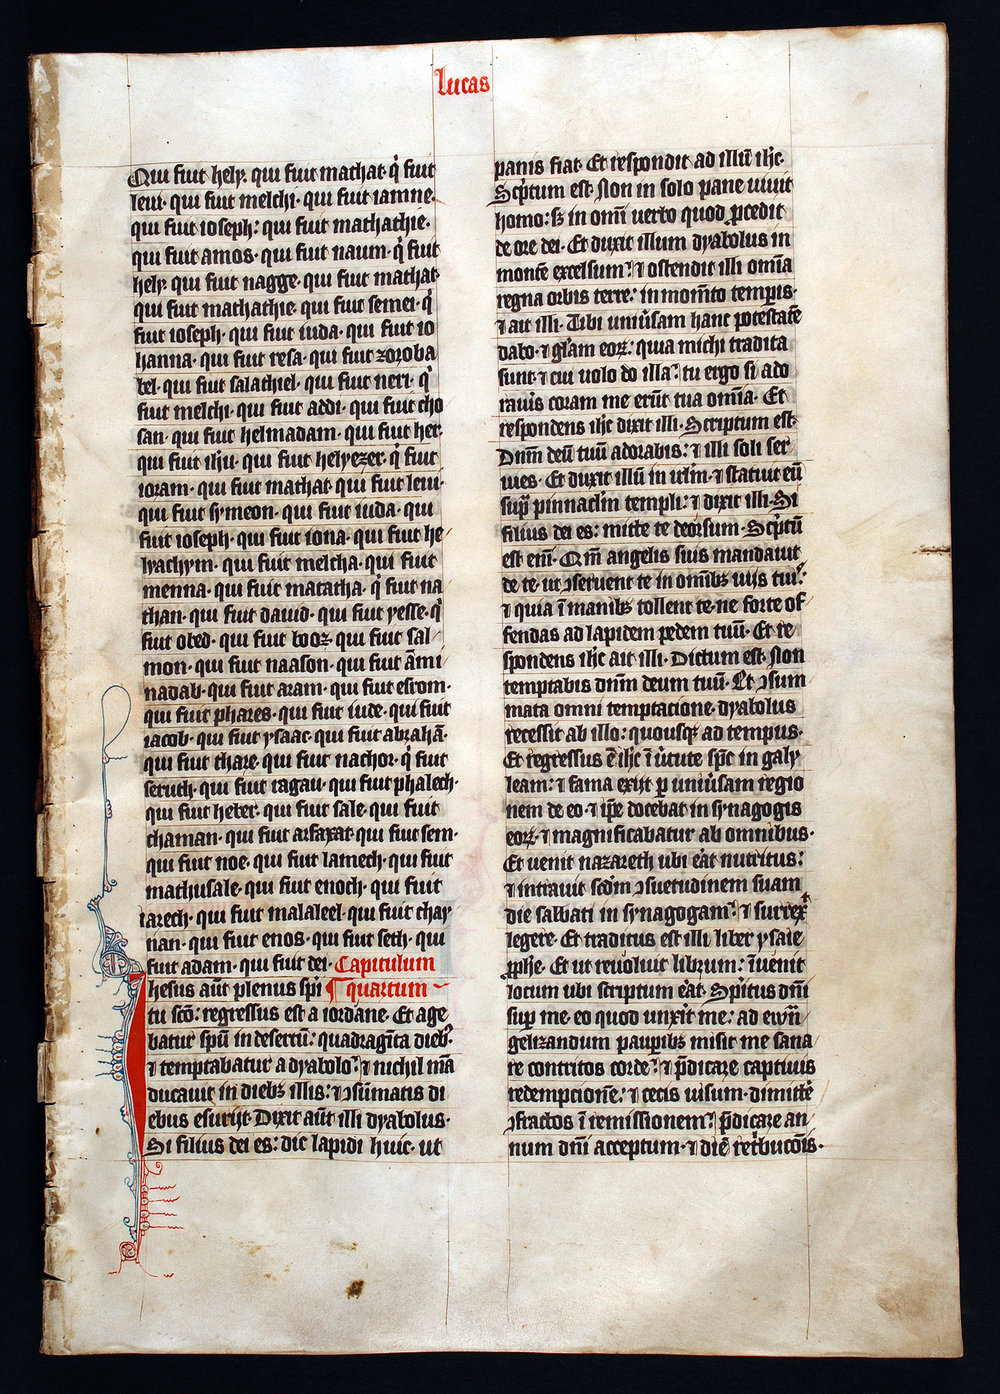 lucas
Qui fuit hely· qui fuit mathat· q̇ fuit
leui· qui fuit melchi· qui fuit iamne·
qui fuit ioseph: qui fuit mathathie·
qui fuit amos· qui fuit naum· q̇ fuit
hely· qui fuit nagge· qui fuit mathat·
qui fuit mathathie· qui fuit semei· q̇
fuit ioseph· qui fuit iuda· qui fuit io
hanna· qui fuit resa· qui fuit zoroba
bel· qui fuit salathiel· qui fuit neri· q̇
fuit melchi· qui fuit addi· qui fuit cho
san· qui fuit helmadam· qui fuit her·
qui fuit ihu· qui fuit helyezer· q̇ fuit
ioram· qui fuit mathat· qui fuit leui·
qui fuit symeon· qui fuit iuda· qui
fuit ioseph· qui fuit iona· qui fuit he
lyachym· qui fuit melcha· qui fuit
menna· qui fuit matatha· q̇ fuit na
than· qui fuit dauid· qui fuit yesse· q̇
fuit obed· qui fuit booz· qui fuit sal
mon· qui fuit naason· qui fuit āmi
nadab· qui fuit aram· qui fuit esrom·
qui fuit phares· qui fuit iude· qui fuit
iacob· qui fuit ysaac· qui fuit abrahā·
qui fuit thare· qui fuit nachor· q̇ fuit
seruth· qui fuit ragau· qui fuit phalech·
qui fuit heber· qui fuit sale· qui fuit
chaman· qui fuit arfaxat· qui fuit sem·
qui fuit noe· qui fuit lamech· qui fuit
mathusale· qui fuit enoch· qui fuit
iarech· qui fuit malaleel· qui fuit chay
nan· qui fuit enos· qui fuit seth· qui
fuit adam· qui fuit dei· Capitulum
Ihesus aūt plenus sp̄i ¶ quartum
tu scō: regressus est a iordane· Et age
batur spū in desertū: quadragīta dieb·
⁊ temptabatur a dyabolo: ⁊ nichil mā
ducauit in diebꝫ illis: ⁊ ꝯsūmatis di
ebus esurijt· Dixit aūt illi dyabolus·
Si filius dei es: dic lapidi huic· ut
panis fiat· Et respondit ad illū ihc̄·
Scp̄tum est· Non in solo pane uiuit
homo: sꝫ in om̄i uerbo quod ꝓcedit
de ore dei· Et duxit illum dyabolus in
montē excelsum: ⁊ ostendit illi om̄ia
regna orbis terre: in mom̄to temꝑis·
⁊ ait illi· Tibi uniūsam hanc potestatē
dabo· ⁊ gl̄am eoꝝ: quia michi tradita
sunt· ⁊ cui uolo do illa: tu ergo si ado
rauīs coram me erūt tua om̄ia· Et
respondens ihc̄ dixit illi· Scriptum est·
Dn̄m deū tuū adorabis: ⁊ illi soli ser
uies· Et duxit illū in irl̄m· ⁊ statuit eū
sup̄ pinnacl̄m templi: ⁊ dixit illi· Si
filius dei es: mitte te deorsum· Scp̄tū
est eni̅· Qm̄ angelis suis mandauit
de te· ut ꝯseruent te in om̄ibꝫ uijs tuis·
⁊ quia ī manibꝫ tollent te· ne forte of
fendas ad lapidem pedem tuū· Et re
spondens ihc̄ ait illi· Dictum est· Non
temptabis dn̄m deum tuū· Et ꝯsum
mata omni temptacione· dyabolus
recessit ab illo: quousqꝫ ad tempus·
Et regressus ē ihc̄ ī ūtute spc̄ in galy
leam: ⁊ fama exijt ꝑ uniūsam regio
nem de eo· ⁊ ip̄e docebat in synagogis
eoꝝ· ⁊ magnificabatur ab omnibus·
Et uenit nazareth ubi eāt nutritus:
⁊ intrauit scd̄m ꝯsuetudinem suam
die sabbati in synagogam: ⁊ surrexit
legere· Et traditus est illi liber ysaie
ꝓphe· Et ut reuoluit librum: īuenit
locum ubi scriptum eāt· Sp̄itus dn̄i
suꝑ me· eo quod unxit me: ad ewā
gelizandum pauꝑibꝫ misit me· sana
re contritos corde: ⁊ p̄dicare captiuis
redempcionē: ⁊ cecis uisum· dimittē
ꝯfractos ī remissionem: p̄dicare an
num dn̄i acceptum· ⁊ diē ret̄bucōis·